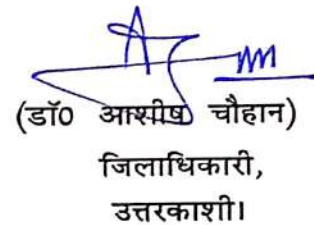 (डॉ0 आशीष चौहान)
जिलाधिकारी,
उत्तरकाशी।